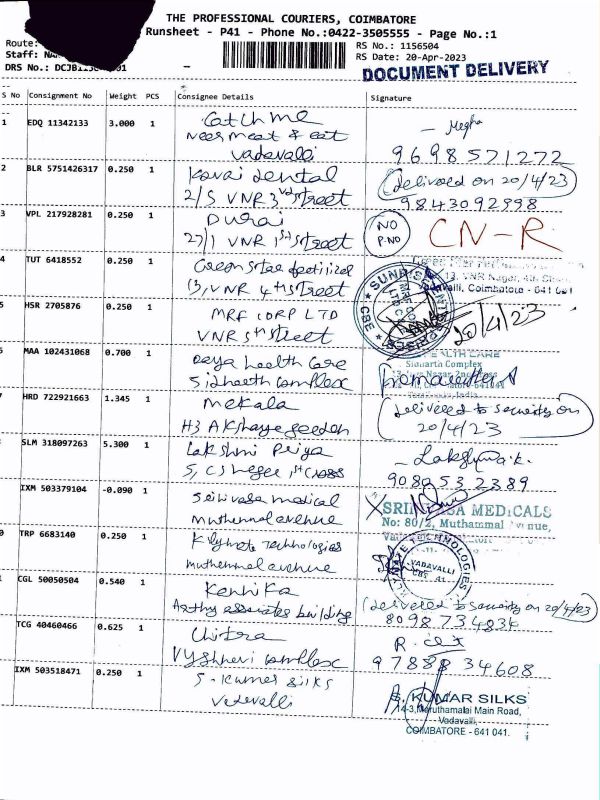 THE PROFESSIONAL COURIERS, COIMBATORE
Runsheet - P41 - Phone No.:0422-3505555 - Page No.:1
Route:
RS No.: 1156504
Staff:
RS Date: 20-Apr-2023
DRS No.:
DOCUMENT DELIVERY
S No Consignment No Weight PCS Consignee Details Signature
1 EDQ 11342133 3.000 1 Catch me - Megha
Near meat & eat
Vadavalli 9698571272
2 BLR 5751426317 0.250 1 Kovai dental (delivered on 20/4/23
2/5 VNR 3rd Street 9843092998
3 VPL 217928281 0.250 1 Durai NO P.NO CN-R
27/1 VNR 1st Street
4 TUT 6418552 0.250 1 Green Star fertilizer
13, VNR 4th Street 13, VNR Nagar, 4th Street
Vadavalli, Coimbatore - 641 041
5 HSR 2705876 0.250 1 MRF CORP LTD 20/4/23
VNR 5th Street
6 MAA 102431068 0.700 1 Daya health Care HEALTH CARE
Sidharth Complex Sidharta Complex
7 HRD 722921663 1.345 1 Mekala (delivered to security on
H3 Akshaya garden 20/4/23
SLM 318097263 5.300 1 Lakshmi Priya
5, CS Nagar 1st Cross 9080532389
IXM 503379104 -0.090 1 Srinivasa medical SRINIVASA MEDICALS
Muthammal avenue No: 80/2, Muthammal Avenue,
0 TRP 6683140 0.250 1 Klynote Technologies KLYNOTE TECHNOLOGIES
Muthammal avenue VADAVALLI
CBE
CGL 50050504 0.540 1 Kanhika (delivered to security on 20/4/23)
Aarthy associates building 8098734834
TCG 40460466 0.625 1 Chitra
Vyshnavi Complex 9788834608
IXM 503518471 0.250 1 S. Kumar Silks S. KUMAR SILKS
Vadavalli 14-3, Maruthamalai Main Road,
Vadavalli,
COIMBATORE - 641 041.